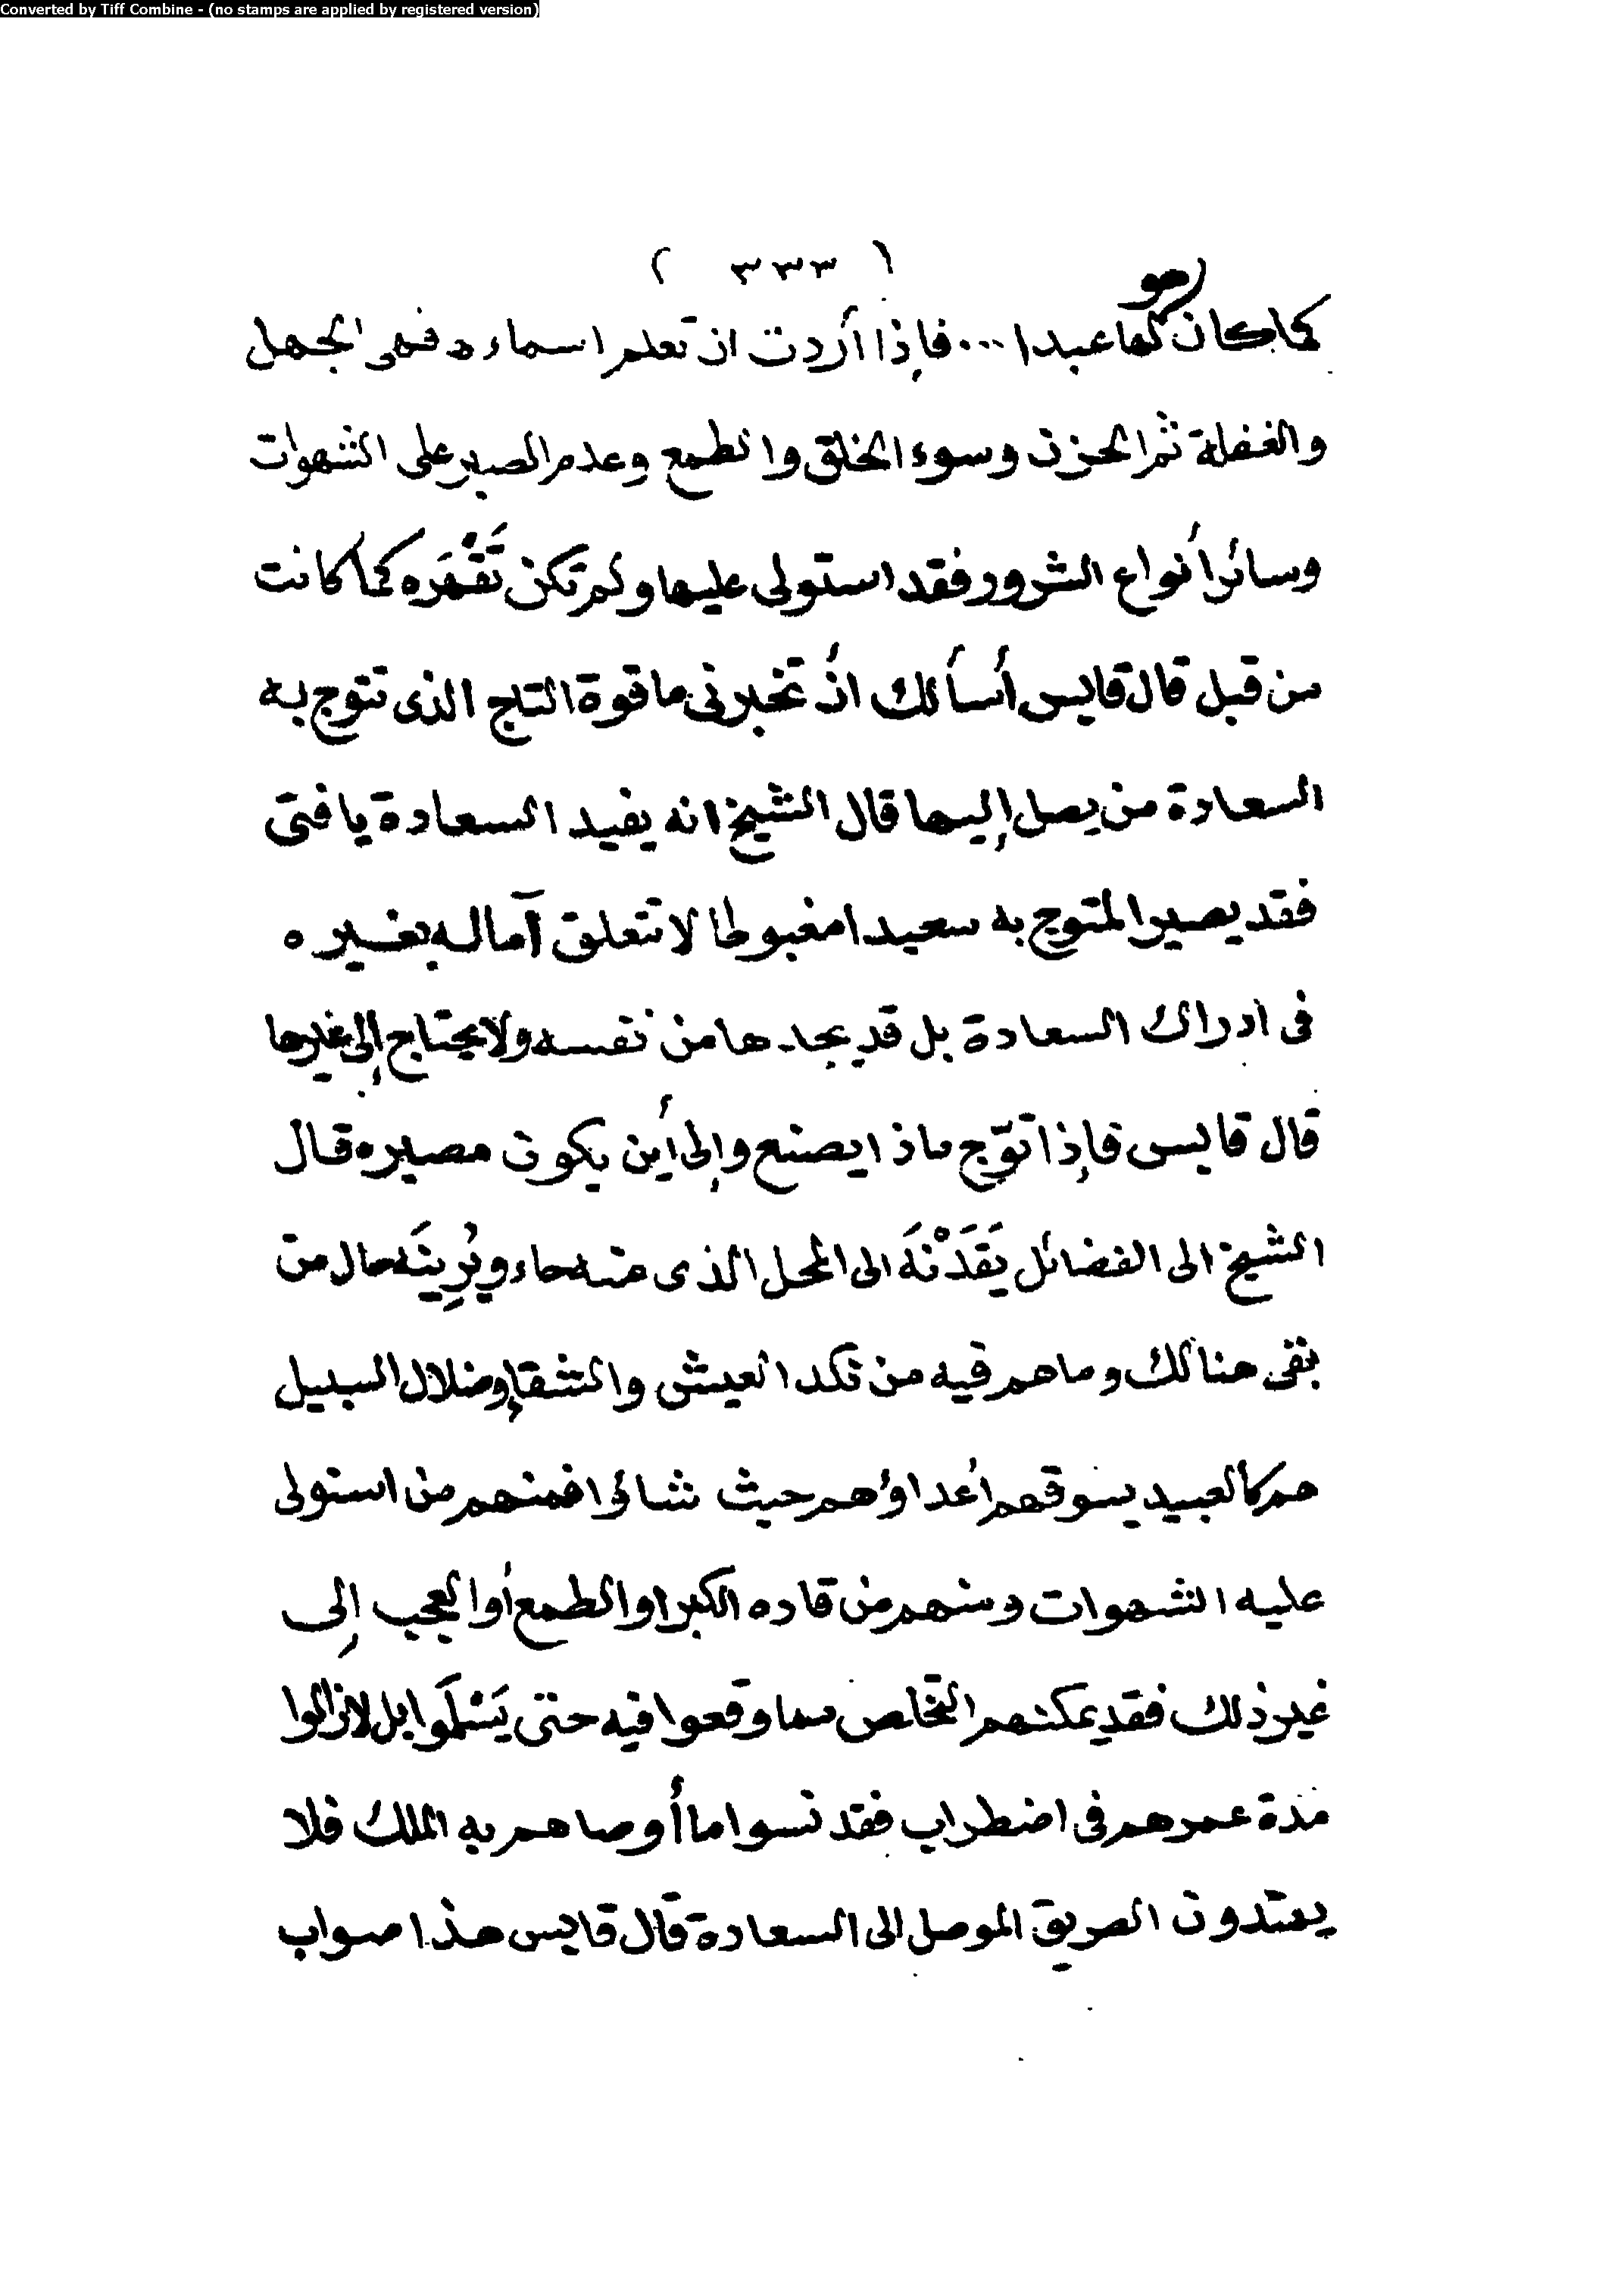 Converted by Tiff Combine - (no stamps are applied by registered version)
( ٣٣٣ )
هو
كما كان لها عبدا ... فإذا أردت ان تعلم اسماءه فهى الجهل
والغفلة ثم الحزن وسوء الخلق والطمع وعدم الصبر على الشهوات
وسائر أنواع الشرور فقد استولى عليها ولم تكن تَقْهَره كما كانت
من قبل قال قابس أسألك انْ تخبرنى ما قوة التاج الذى تتوج به
السعادة من يصل إليها قال الشيخ انه يفيد السعادة يا فتى
فقد يصير المتوج به سعيدا مغبوطا لا تتعلق آماله بغيره
فى ادراك السعادة بل قد يجدها من نفسه ولا يحتاج إلى غيرها
قال قابس فإذا توّج ماذا يصنع وإلى أين يكون مصيره قال
الشيخ الى الفضائل يَقَدْنَهُ الى المحل الذى منه جاء ويُرِينَه حال من
بقى هنالك وما هم فيه من نكد العيش والشقاء وضلال السبيل
هم كالعبيد يسوقهم أعداؤهم حيث شاؤا فمنهم من استولى
عليه الشهوات ومنهم من قاده الكبر او الطمع أو العجب إلى
غير ذلك فقد يمكنهم التخلص مما وقعوا فيه حتى يَسْلَموا بل لازالوا
مدة عمرهم فى اضطراب فقد نسوا ما أوصاهم به الملك فلا
يهتدون الصريق الموصل الى السعادة قال قابس هذا صواب